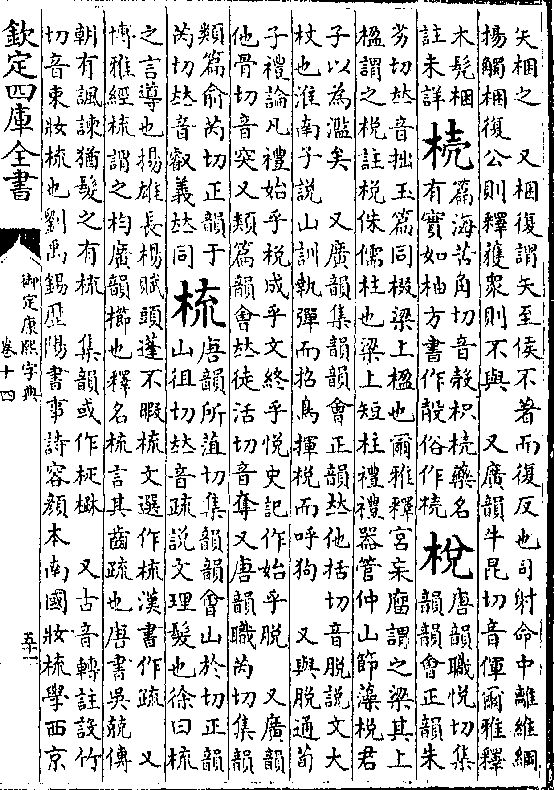 矢梱之　又梱復謂矢至侯不著而復反也司射命中離維綱
揚觸梱復公則釋獲衆則不與　又廣韻牛昆切音僤爾雅釋
木髡梱註未詳　㭠篇海苦角切音殻枳㭠藥名有實如柚方書作殻俗作㭠　梲唐韻職悅切集韻韻會正韻朱
劣切𠀤音拙玉篇同棳梁上楹也爾雅釋宮㮤廇謂之梁其上
楹謂之梲註梲侏儒柱也梁上短柱禮禮器管仲山節藻梲君
子以爲濫矣　又廣韻集韻韻會正韻𠀤他括切音脫說文大
杖也淮南子說山訓執彈而招鳥揮梲而呼狗　又與脫通荀
子禮論凡禮始乎梲成乎文終乎悅史記作始乎脫　又廣韻
他骨切音突又類篇韻會𠀤徒活切音奪又唐韻職芮切集韻
類篇俞芮切正韻于芮切𠀤音叡義𠀤同　梳唐韻所葅切集韻韻會山於切正韻山徂切𠀤音疏說文理髮也徐曰梳
之言導也揚雄長楊賦頭蓬不暇梳文選作梳漢書作疏　又
博雅經梳謂之枃廣韻櫛也釋名梳言其齒疏也唐書吳兢傳
朝有諷諫猶髮之有梳　集韻或作㭏𣘚　又古音轉註設竹
切音束妝梳也劉禹錫歷陽書事詩容顏本南國妝梳學西京
欽定四庫全書
御定康熙字典
卷十四
五十一